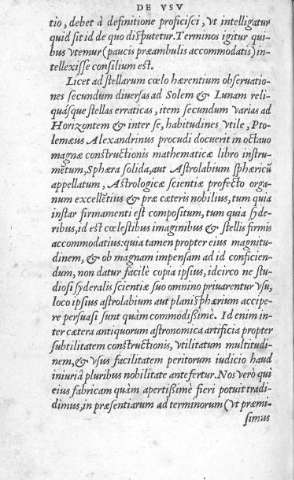 DE VSV
tio, debet à definitione proficisci, vt intelligatur
quid sit id de quo disputetur. Terminos igitur qui-
bus vtemur (paucis præambulis accommodatis) in-
tellexisse consilium est.
Licet ad stellarum cœlo hærentium obseruatio-
nes secundum diuersas ad Solem & Lunam reli-
quásque stellas erraticas, item secundum varias ad
Horizontem & inter se, habitudines vtile, Pto-
lemæus Alexandrinus procudi docuerit in octauo
magnæ constructionis mathematicæ libro instru-
mētum, Sphæra solida, aut Astrolabium sphæricū
appellatum, Astrologicæ scientiæ profecto orga-
num excellētius & præ cæteris nobilius, tum quia
instar firmamenti est compositum, tum quia syde-
ribus, id est cœlestibus imaginibus & stellis firmis
accommodatius: quia tamen propter eius magnitu-
dinem, & ob magnam impensam ad id conficien-
dum, non datur facilè copia ipsius, idcirco ne stu-
diosi syderalis scientiæ suo omnino priuarentur vsu,
loco ipsius astrolabium aut planisphærium accipe-
re persuasi sunt quàm commodissimè. Id enim in-
ter cætera antiquorum astronomica artificia propter
subtilitatem constructionis, vtilitatum multitudi-
nem, & vsus facilitatem peritorum iudicio haud
iniuriâ pluribus nobilitate antefertur. Nos verò qui
eius fabricam quàm apertissimè fieri potuit tradi-
dimus, in præsentiarum ad terminorum (vt præmi-
simus